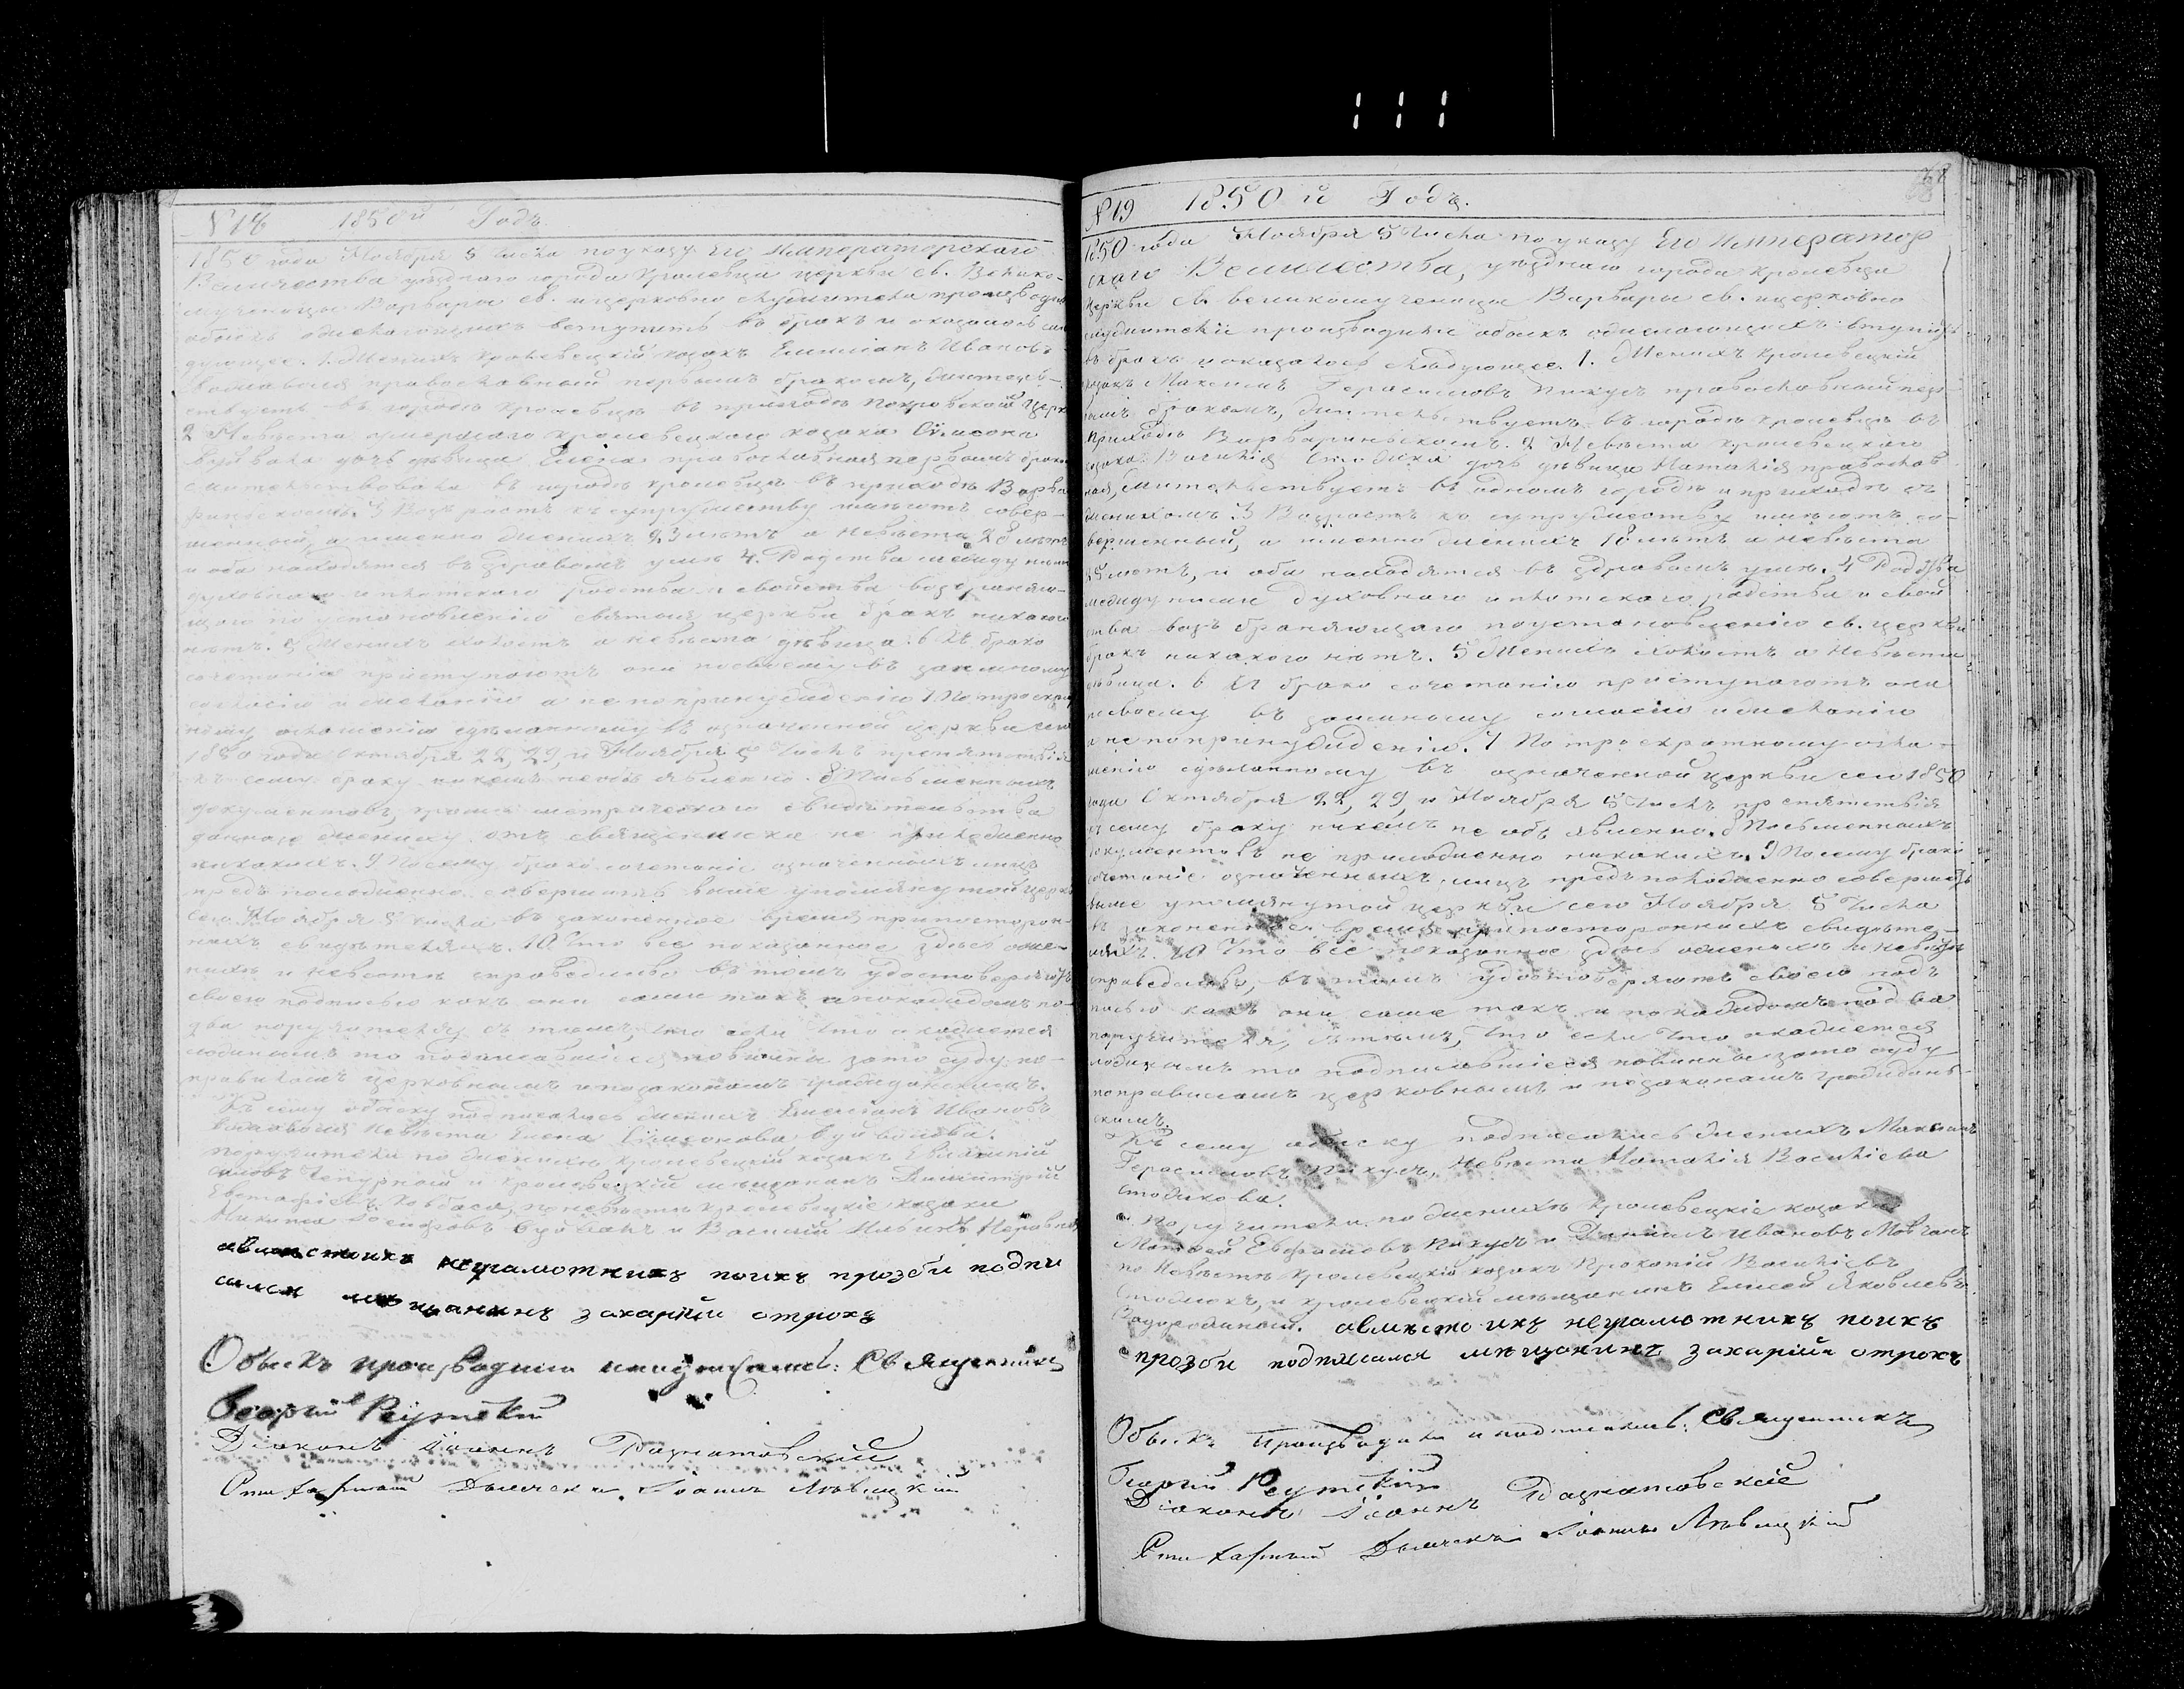 № 18 1850й Годъ.
1850 года Ноября 5 числа по указу Его Императорскаго
Величества уѣзднаго города Кролевца церкви св. Велико-
мученицы Варвары св. и церковно служители производили
обыскъ о желающихъ вступить въ бракъ и оказалось слѣ
дующее. 1. Женихъ Кролевецкій козакъ Емиліанъ Ивановъ
православный первымъ бракомъ, житель-
ствуетъ въ городѣ Кролевцѣ въ приходѣ Покровской церк
2 Невѣста умершаго Кролевецкаго козака Симеона
дочь дѣвица Елена православная первымъ брако
жительствовала въ городѣ Кролевцѣ въ приходѣ Варва
ринскомъ. 3 Возрастъ къ супружеству имѣютъ совер-
шенный, а именно женихъ 23 лѣтъ а невѣста 28 лѣтъ
и оба находятся въ здравомъ умѣ 4. Родства между ними
духовнаго и плотскаго родства и свойства возбраняю-
щаго по установленію святыя церкви бракъ никакого
нѣтъ. 5 Женихъ холостъ а невѣста дѣвица. 6 Къ брако
сочетанію приступаютъ они по своему взаимному
согласію и желанію а не по принужденію 7 По троекрат
ному оглашенію сдѣланному въ означенной церкви сего
1850 года Октября 22, 29, и Ноября 5 числъ препятствія
къ сему браку никемъ не объявленно. 8 Письменныхъ
документовъ, кроме метрическаго свидѣтельства
даннаго жениху отъ священника не приложенно
никакихъ. 9 Посему брако сочетаніе означенныхъ лицъ
предположенно совершить въ выше упомянутой церкв
сего Ноября 5 числа въ законенное время при посторон-
нихъ свидѣтеляхъ. 10 Что все показанное здѣсь о же-
нихѣ и невѣстѣ справедливо въ томъ удостоверяютъ
своею подписью какъ они сами такъ и по каждомъ по-
два поручителя съ тѣмъ, что если что окажется
ложнымъ то подписавшіеся повинны за то суду по
правиламъ церковнымъ и по законамъ гражданскимъ.
Къ сему обыску подписались женихъ Емиліанъ Ивановъ
невѣста Елена Симеонова
поручители по женихѣ Кролевецкій козакъ
и Кролевецкій мѣщанинъ Димитрій
по невѣстѣ Кролевецкіе козаки
Никита Іосифовъ и Василій
авместоихъ неграмотнихъ поихъ прозби подпи
сался мѣщанинъ захарий отрохъ
Обыскъ производили и подписались: Священникъ
Георгій Реутскій
Діаконъ Іоаннъ
Іоаннъ Лѣвицкій
№ 19 1850й Годъ.
1850 года Ноября 5 числа по указу Его Император
скаго Величества, уѣзднаго города Кролевца
церкви св. великомученицы Варвары св. и церковно
служители производили обыскъ о желающихъ вступить
въ бракъ и оказалось слѣдующее. 1. Женихъ Кролевецкій
козакъ Максимъ Герасимовъ Пикулъ православный пер
вымъ бракомъ, жительствуетъ въ городѣ Кролевцѣ въ
приходѣ Варваринскомъ. 2 Невѣста Кролевецкаго
козака Василія дочь дѣвица Наталія православ
ная, жительствуетъ въ одномъ городѣ и приходѣ съ
женихомъ. 3 Возрастъ къ супружеству имѣютъ со-
вершенный, а именно женихъ 18 лѣтъ а невѣста
лѣтъ, и оба находятся въ здравомъ умѣ. 4 Родства
между ними духовнаго и плотскаго родства и свой
ства возбраняющаго по установленію св. церкви
бракъ никакого нѣтъ. 5 Женихъ холостъ а невѣста
дѣвица. 6 Къ брако сочетанію приступаютъ они
по своему взаимному согласію и желанію
а не по принужденію. 7 По троекратному огла-
шенію сдѣланному въ означенной церкви сего 1850
года Октября 22, 29 и Ноября 5 числъ препятствія
къ сему браку никемъ не объявленно. 8 Письменныхъ
документовъ не приложенно никакихъ. 9 Посему брако
сочетаніе означенныхъ лицъ предположенно совершить
въ выше упомянутой церкви сего Ноября 5 числа
въ законенное время при постороннихъ свидѣте-
ляхъ. 10 Что все показанное здѣсь о женихѣ и невѣстѣ
справедливо, въ томъ удостоверяютъ своею под
писью какъ они сами такъ и по каждомъ по два
поручителя, съ тѣмъ, что если что окажется
ложнымъ то подписавшіеся повинны за то суду
по правиламъ церковнымъ и по законамъ граждан-
скимъ.
Къ сему обыску подписались женихъ Максимъ
Герасимовъ Пикулъ, невѣста Наталія Василіева
Поручители по женихѣ Кролевецкіе козаки
Матвей Пикулъ и Даніилъ Ивановъ Мовчанъ
по невѣстѣ Кролевецкій козакъ Прокопій Василіевъ
и Кролевецкій мѣщанинъ Елисей Яковлевъ
авмѣсто ихъ неграмотнихъ поихъ
прозби подписался мѣщанинъ захарий отрохъ
Обыскъ производили и подписались: Священникъ
Георгій Реутскій
Діаконъ Іоаннъ
Іоаннъ Лѣвицкій